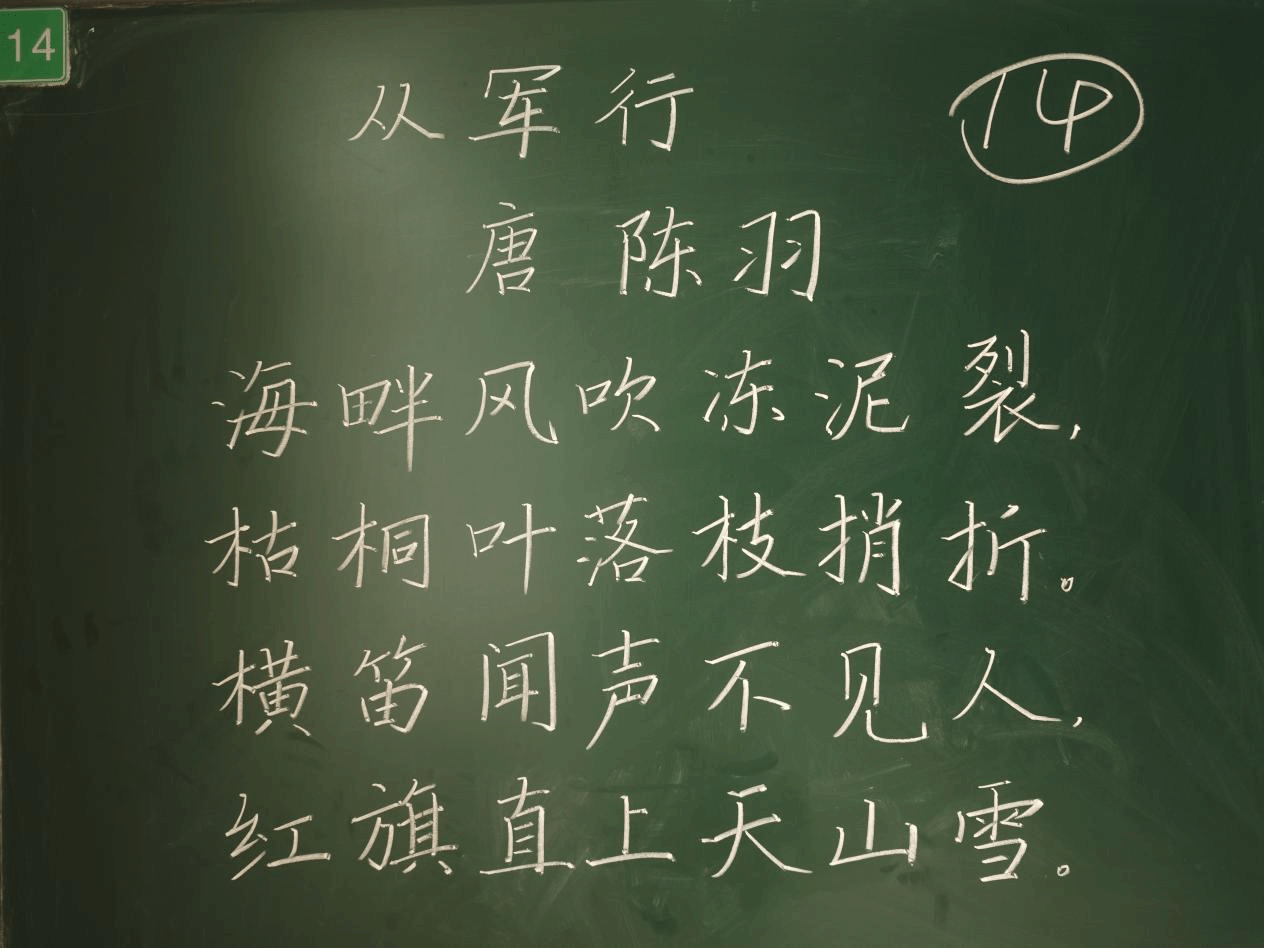 14
从军行 14
唐 陈羽
海畔风吹冻泥裂，
枯桐叶落枝捎折。
横笛闻声不见人，
红旗直上天山雪。